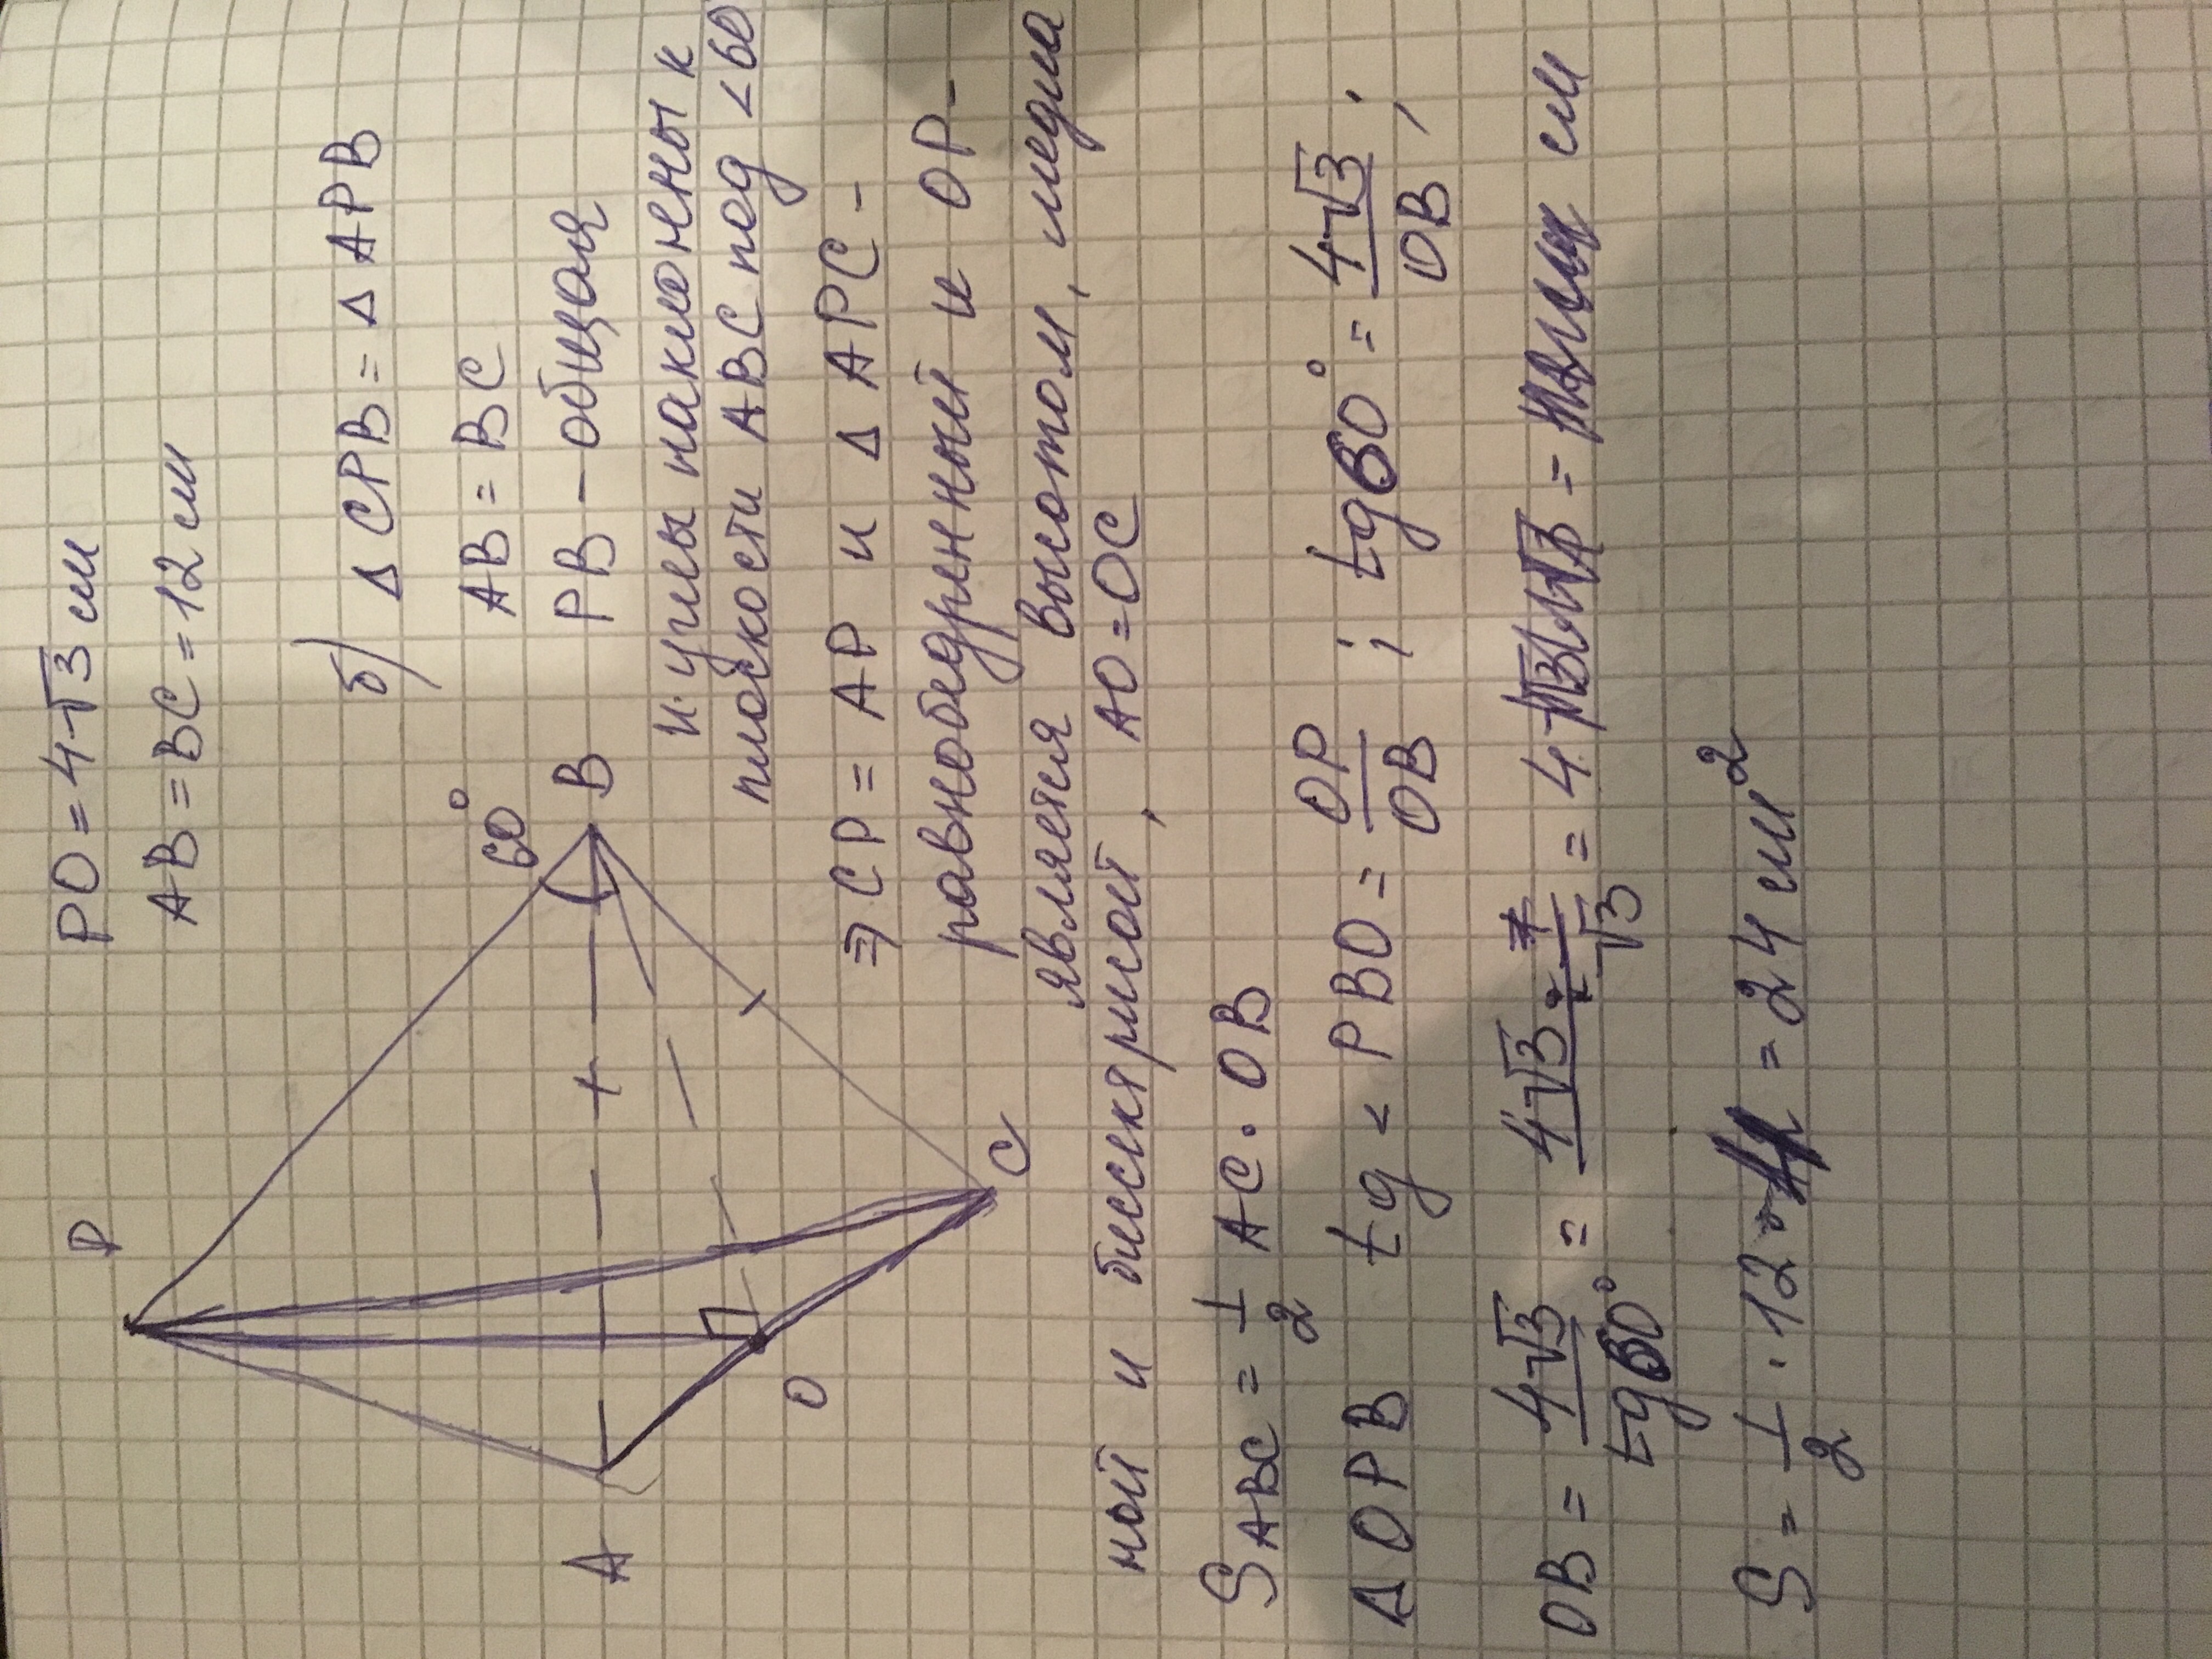 PO = 4√3 см
AB = BC = 12 см
б) Δ CPB = Δ APB
AB = BC
PB – общая
и углы наклонены к
плоскости ABC под < 60
⇒ CP = AP и Δ APC –
равнобедренный и OP-
является высотой, медиа
ной и биссектрисой, AO=OC
P
60°
B
A
O
C
S ABC = 1/2 AC · OB
Δ OPB tg < PBO = OP/OB ; tg 60° = 4√3/OB ;
OB = 4√3/tg60° = 4√3/√3 = 4 = см
S = 1/2 · 12 · = 24 см²